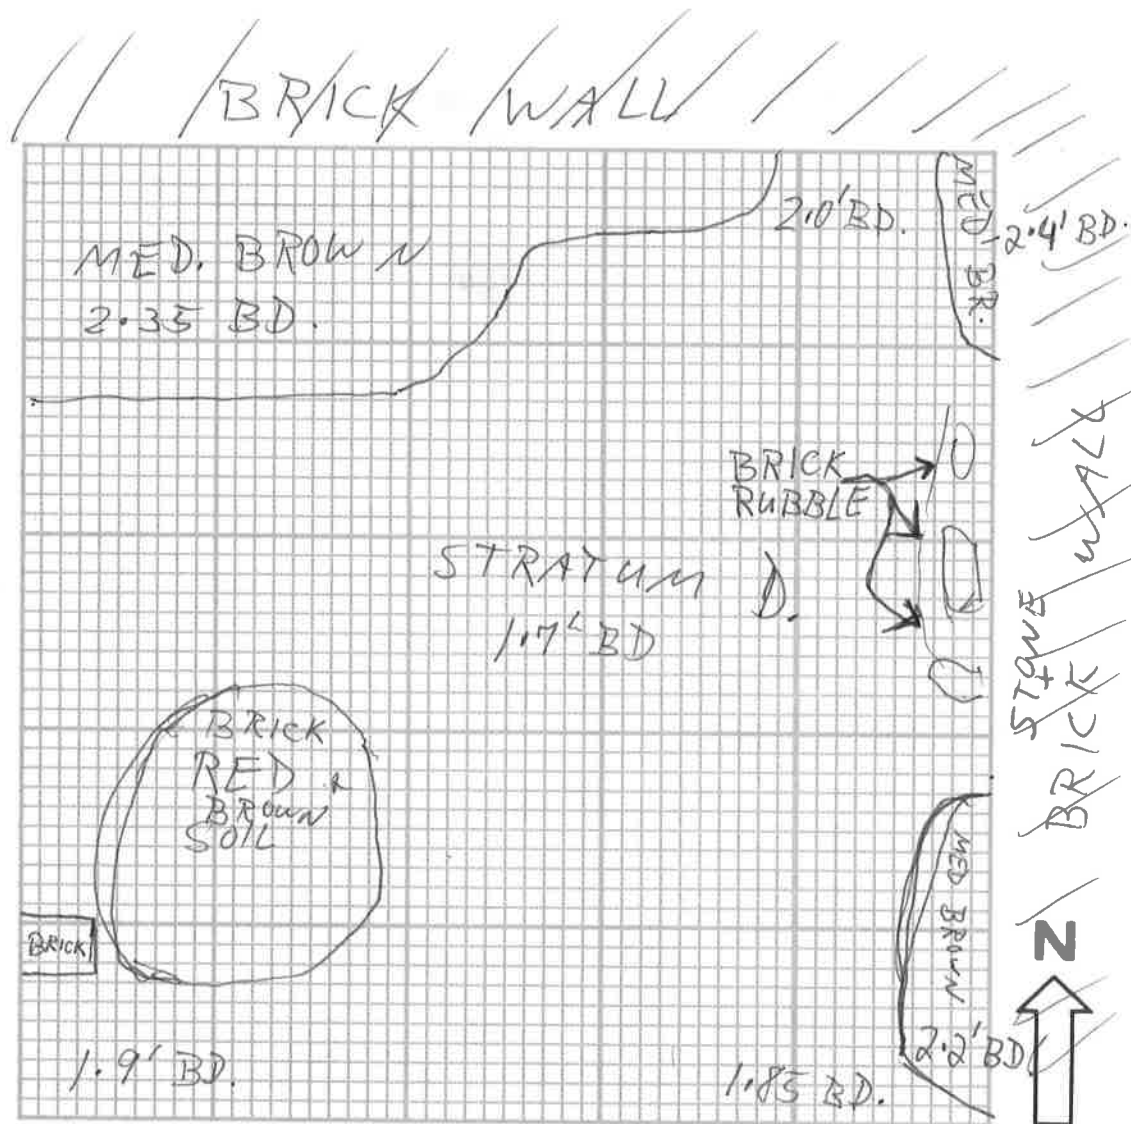 BRICK WALL
MED. BROWN
2.35 BD.
2.0' BD.
MED BR.
2.4' BD.
BRICK
RUBBLE
STRATUM D.
1.7' BD
STONE +
BRICK WALL
BRICK
RED +
BROWN
SOIL
BRICK
MED BROWN
2.2' BD
N
1.9' BD.
1.85 BD.